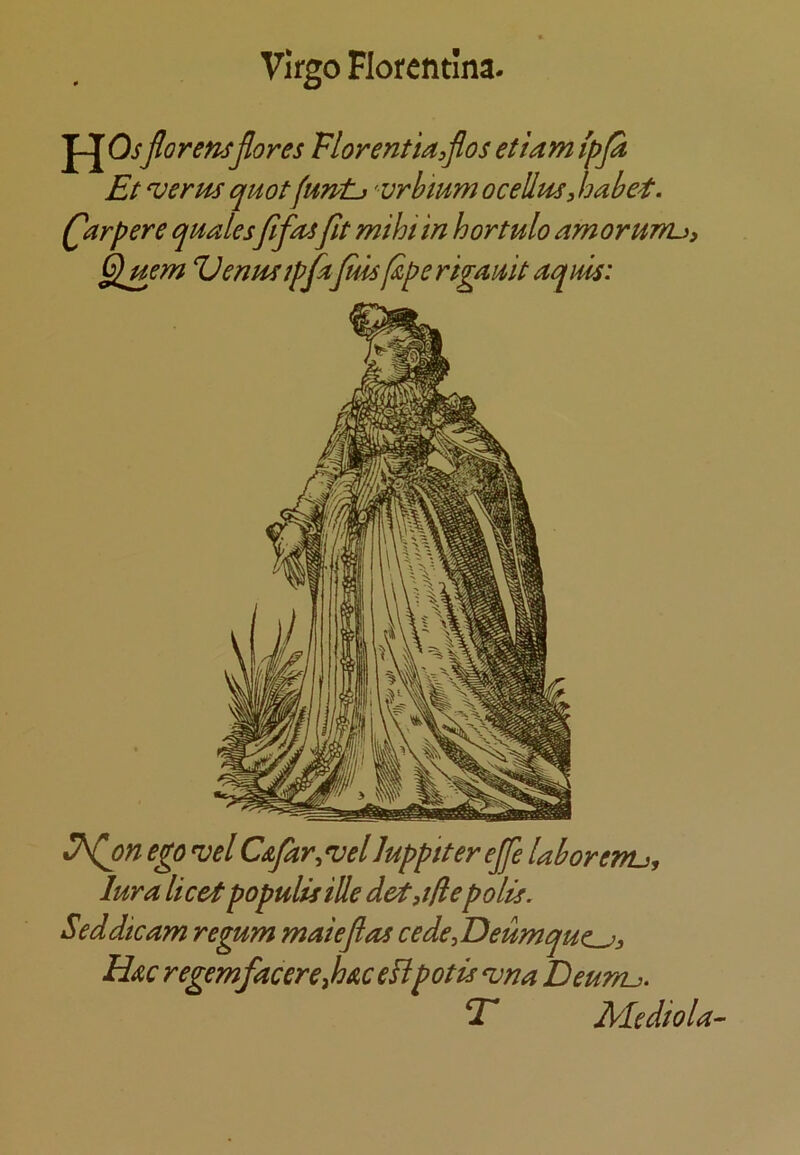 Virgo Florentina.
HOs florens flores Florentia, flos etiam ipsa
Et verus quot sunt vrbium ocellus, habet.
Carpere quales si fas sit mihi in hortulo amorum,
Quem Venus ipsa suis sæpe rigauit aquis:
Non ego vel Cæsar, vel Iuppiter esse laborem,
Iura licet populis ille det, iste polis.
Sed dicam regum maiestas cede, Deûmque,
Hæc regem facere, hæc est potis vna Deum.
T Mediola-